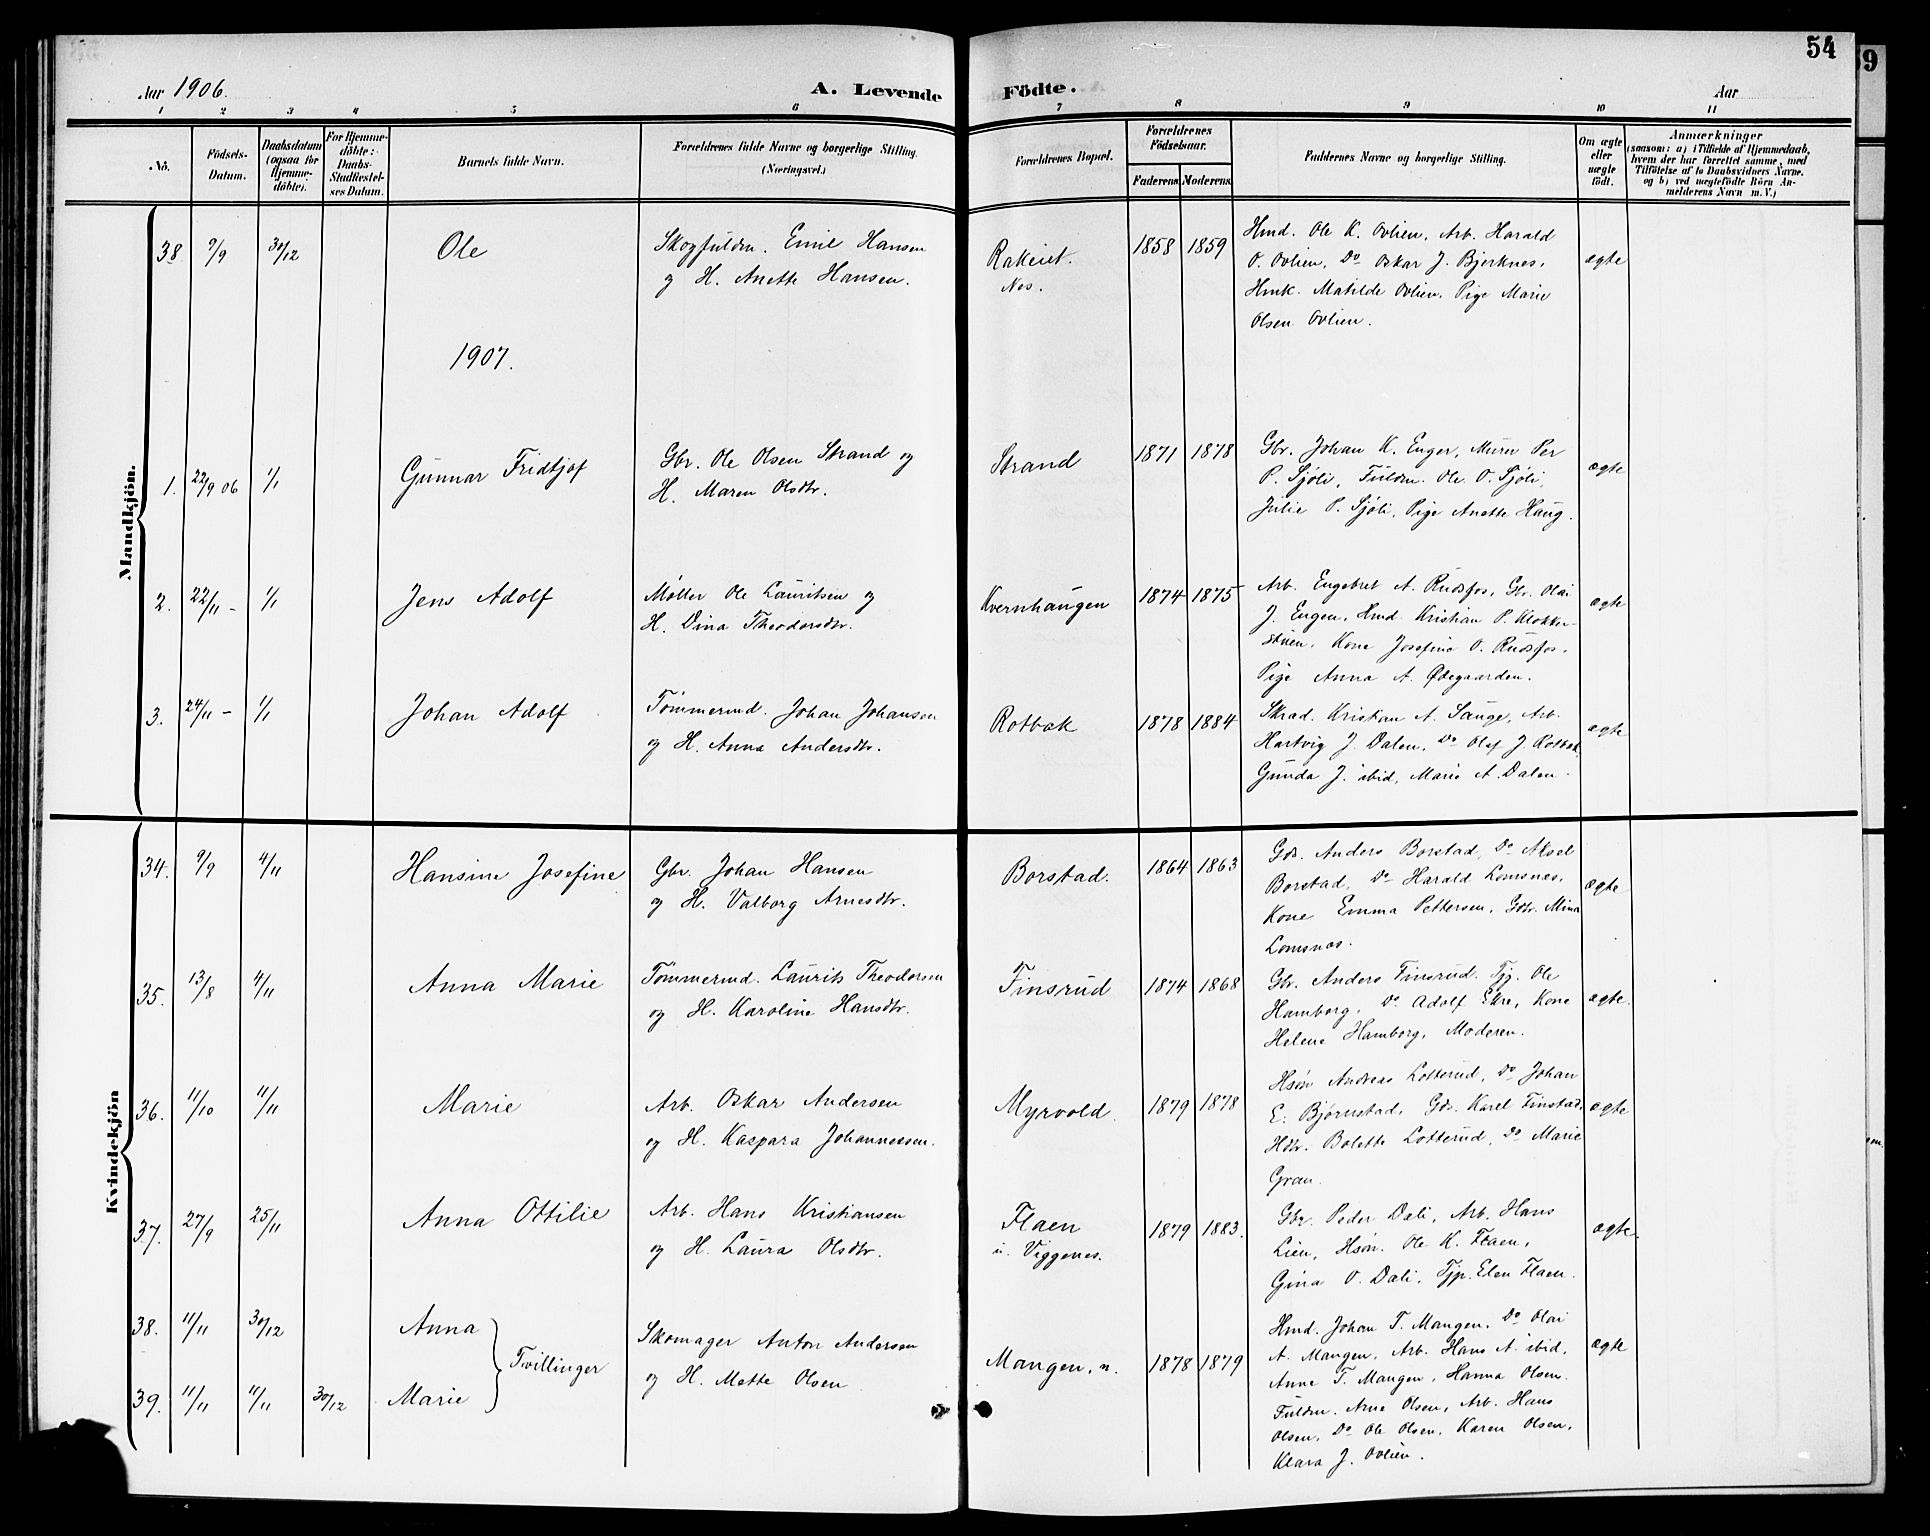 54
9
Aar 1906.
A. Levende Födte.
Aar
1 2 3 4 5 6 7 8 9 10 11
No.
Födsels-Datum.
Daabsdatum (ogsaa for Hjemmedöbte).
For Hjemmedöbte: Daabs-Stadfæstelses Datum.
Barnets fulde Navn.
Forældrenes fulde Navne og borgerlige Stilling. (Næringsvei.)
Forældrenes Bopæl.
Forældrenes Födselsaar.
Faderens. Moderens.
Faddernes Navne og borgerlige Stilling.
Om ægte eller uægte födt.
Anmærkninger
(saasom: a) i Tilfælde af Hjemmedaab, hvem der har forrettet samme, med Tilföielse af to Daabsvidners Navne. og b) ved uægtefödte Börn Anmelderens Navn m. V.)
Mandkjön.
38 7/9 30/12 Ole
Skogfuldm. Emil Hansen
og H. Anette Hansen.
Rakeiet.
Nes.
1858 1859
Hmd. Ole K. Ovlien, Arb. Harald
O. Ovlien, Do Oskar J. Bjerknes,
Hmk. Matilde Ovlien, Pige Marie
Olsen Ovlien.
ægte
1907.
1. 22/9 06 1/1 Gunnar Fridtjof
Gbr. Ole Olsen Strand og
H. Maren Olsdtr.
Strand
1871 1878
Gbr. Johan K. Enger, Murer Per
P. Sjøli, Fuldm. Ole O. Sjøli,
Julie P. Sjøli, Pige Anette Haug.
ægte
2. 22/11 - 1/1 Jens Adolf
Møller Ole Lauritsen og
H. Dina Theodorsdtr.
Kvernhaugen
1874 1875
Arb. Engebret A. Rudsfos, Gbr. Olai
J. Engen, Hmd. Kristian P. Klokker-
stuen, Kone Josefine O. Rudsfos,
Pige Anna A. Ødegaarden.
ægte
3. 24/11 - 1/1 Johan Adolf
Tømmermd. Johan Johansen
og H. Anna Andersdtr.
Rotbæk
1878 1884
Skrad. Kristian A. Sauge, Arb.
Hartvig J. Dalen, Do Olaf J. Rotbæk,
Gunda J. ibid, Marie A. Dalen.
ægte
Kvindekjön
34. 9/9 4/11 Hansine Josefine
Gbr. Johan Hansen
og H. Valborg Arnesdtr.
Borstad.
1864 1863
Gds. Anders Borstad, Do Aksel
Borstad, Do Harald Lomsnes,
Kone Emma Pettersen, Gdtr. Mina
Lomsnes.
ægte
35. 13/8 4/11 Anna Marie
Tømmermd. Laurits Theodorsen
og H. Karoline Hansdtr.
Finsrud
1874 1868
Gbr. Anders Finsrud. Tjg. Ole
Hamborg, Do Adolf Ekre, Kone
Helene Hamborg, Moderen.
ægte.
36. 11/10 11/11 Marie
Arb. Oskar Andersen
og H. Kaspara Johannessen.
Myrvold.
1879 1878
Hsøn Andreas Lotterud, Do Johan
E. Bjørnstad, Gds. Karel Finstad,
Hdtr. Bolette Lotterud, Do Marie
Gran.
ægte
37. 27/9 25/11 Anna Ottilie
Arb. Hans Kristiansen
og H. Laura Olsdtr.
Flaen
u. Viggenes.
1879 1883.
Gbr. Peder Dali, Arb. Hans
Lien, Hsøn. Ole K. Flaen,
Gina O. Dali, Tjp. Elen Flaen.
ægte.
38. 11/11 30/12 Anna
39. 11/11 11/11 30/12 Marie
Tvillinger
Skomager Anton Andersen
og H. Mette Olsen
Mangen, n.
1878 1879
Hmd. Johan T. Mangen, Do Olai
A. Mangen, Arb. Hans A. ibid,
Anne T. Mangen, Hanna Olsen.
Fuldm. Arne Olsen, Arb. Hans
Olsen, Do Ole Olsen, Karen Olsen,
Klara J. Ovlien.
ægte